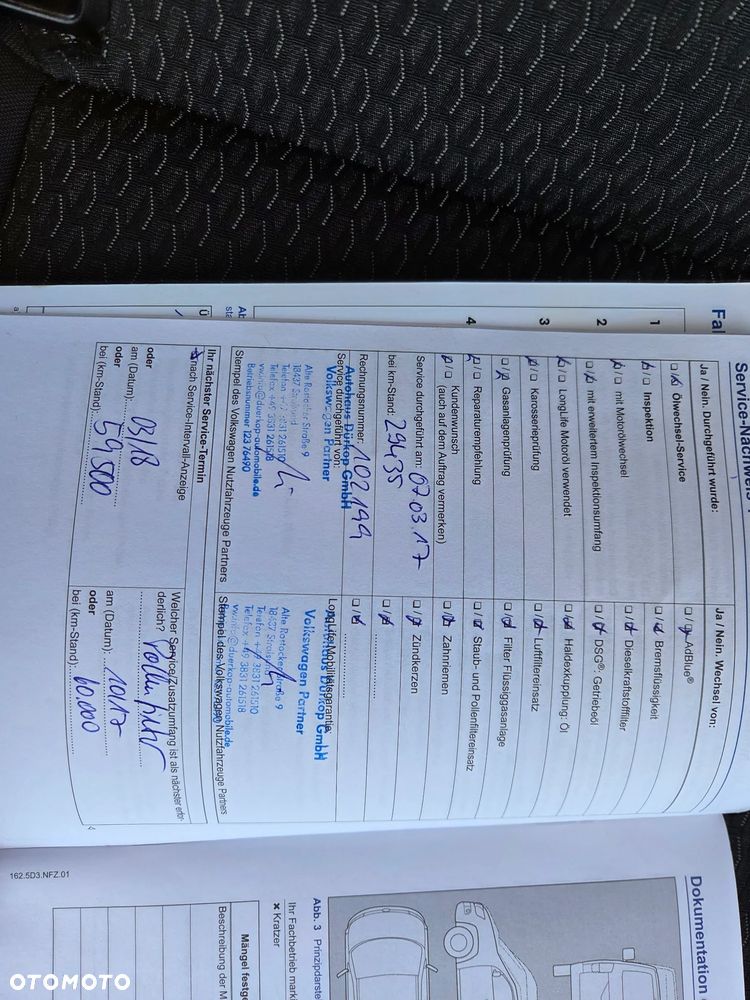 Service-Nachweis
Ja / Nein. Durchgeführt wurde:
Ölwechsel-Service
Inspektion
mit Motorölwechsel
mit erweitertem Inspektionsumfang
LongLife Motoröl verwendet
Karosserieprüfung
Gasanlagenprüfung
Reparaturempfehlung
Kundenwunsch
(auch auf dem Auftrag vermerken)
Service durchgeführt am: 07.03.17
bei km-Stand: 29435
Rechnungsnummer: 102199
Service durchgeführt von:
Autohaus Dürkop GmbH
Volkswagen Partner
Alte Rostocker Straße 9
18437 Stralsund
Telefon +49 3831 261510
Telefax +49 3831 261518
vw.info@duerkop-automobile.de
Betriebsnummer 123 76490
Stempel des Volkswagen Nutzfahrzeuge Partners
Ja / Nein. Wechsel von:
AdBlue®
Bremsflüssigkeit
Dieselkraftstofffilter
DSG®, Getriebeöl
Haldexkupplung: Öl
Luftfiltereinsatz
Filter Flüssiggasanlage
Staub- und Pollenfiltereinsatz
Zahnriemen
Zündkerzen
LongLife Mobilitätsgarantie:
Autohaus Dürkop GmbH
Volkswagen Partner
Alte Rostocker Straße 9
18437 Stralsund
Telefon +49 3831 261510
Telefax +49 3831 261518
vw.info@duerkop-automobile.de
Stempel des Volkswagen Nutzfahrzeuge Partners
Ihr nächster Service-Termin
nach Service-Intervall-Anzeige
oder
am (Datum): 03/18
oder
bei (km-Stand): 59500
Welcher Service/Zusatzumfang ist als nächster erfor-
derlich? Pollenfilter
am (Datum): 10/17
oder
bei (km-Stand): 60.000
4
Fal
1
2
3
4
Ab
sta
Ü
a
162.5D3.NFZ.01
Dokumentation
Abb. 3 Prinzipdarste
Ihr Fachbetrieb marki
× Kratzer
Mängel festge
Beschreibung der M
OTOMOTO